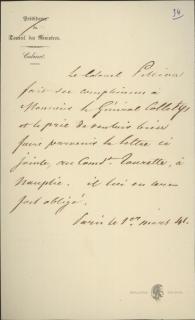 34
Présidence
du
Conseil des Ministres.
Cabinet.
Le Colonel
fait ses compliments à
Monsieur le Général
et le prie de vouloir bien
faire parvenir la lettre ci
jointe, au Comdt. Tourette, à
Nauplie. il lui en sera
fort obligé.
Paris le 1er mars 41.